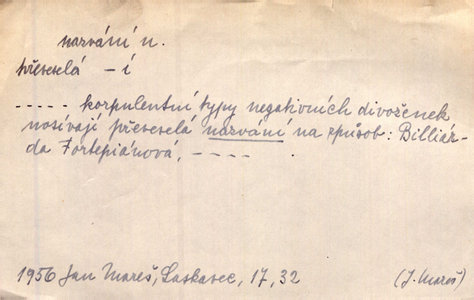 nazvání n.
převeselá – í
- - - - - korpulentní typy negativních divoženek
nosívají převeselá nazvání na způsob: Billiár-
da Fortepiánová, - - - -
1956 Jan Mareš, Laskavec, 17, 32 (J. Mareš)